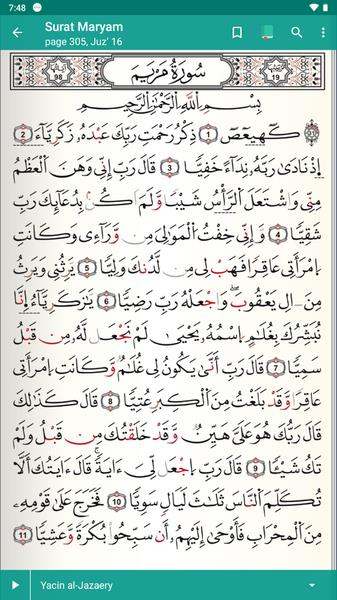 7:48
Surat Maryam
page 305, Juz' 16
98
سُورَةُ مَرْيَمَ
19
بِسْمِ اِللَّهِ اِلرَّحْمَٰنِ اِلرَّحِيمِ
كَٓهيعَٓصَٓ 1 ذِكْرُ رَحْمَتِ رَبِّكَ عَبْدَهُۥ زَكَرِيَّآءَ 2
إِذْ نَادَىٰ رَبَّهُۥ نِدَآءً خَفِيّٗا 3 قَالَ رَبِّ إِنِّے وَهَنَ اَلْعَظْمُ
مِنِّے وَاشْتَعَلَ اَلرَّأْسُ شَيْبٗا وَلَمَ اَكُنۢ بِدُعَآئِكَ رَبِّ
شَقِيّٗا 4 وَإِنِّے خِفْتُ اُلْمَوَٰلِيَ مِنْ وَّرَآءِے وَكَانَتِ
اِمْرَأَتِے عَاقِرٗا فَهَبْ لِے مِن لَّدُنكَ وَلِيّٗا 5 يَرِثُنِے وَيَرِثُ
مِنَ اٰلِ يَعْقُوبَۖ وَاجْعَلْهُ رَبِّ رَضِيّٗا 6 يَٰزَكَرِيَّآءُ اِ۪نَّا
نُبَشِّرُكَ بِغُلَٰمٍ اِسْمُهُۥ يَحْيَىٰ لَمْ نَجْعَل لَّهُۥ مِن قَبْلُ
سَمِيّٗا 7 قَالَ رَبِّ أَنَّىٰ يَكُونُ لِے غُلَٰمٞ وَكَانَتِ اِمْرَأَتِے
عَاقِرٗا وَقَدْ بَلَغْتُ مِنَ اَلْكِبَرِ عُتِيّٗا 8 قَالَ كَذَٰلِكَ
قَالَ رَبُّكَ هُوَ عَلَيَّ هَيِّنٞ وَقَدْ خَلَقْتُكَ مِن قَبْلُ وَلَمْ
تَكُ شَيْـٔٗا 9 قَالَ رَبِّ اِجْعَل لِّيَ ءَايَةٗ قَالَ ءَايَتُكَ أَلَّا
تُكَلِّمَ اَلنَّاسَ ثَلَٰثَ لَيَالٖ سَوِيّٗا 10 فَخَرَجَ عَلَىٰ قَوْمِهِۦ
مِنَ اَلْمِحْرَابِ فَأَوْحَىٰ إِلَيْهِمُۥٓ أَن سَبِّحُواْ بُكْرَةٗ وَعَشِيّٗا 11
Yacin al-Jazaery